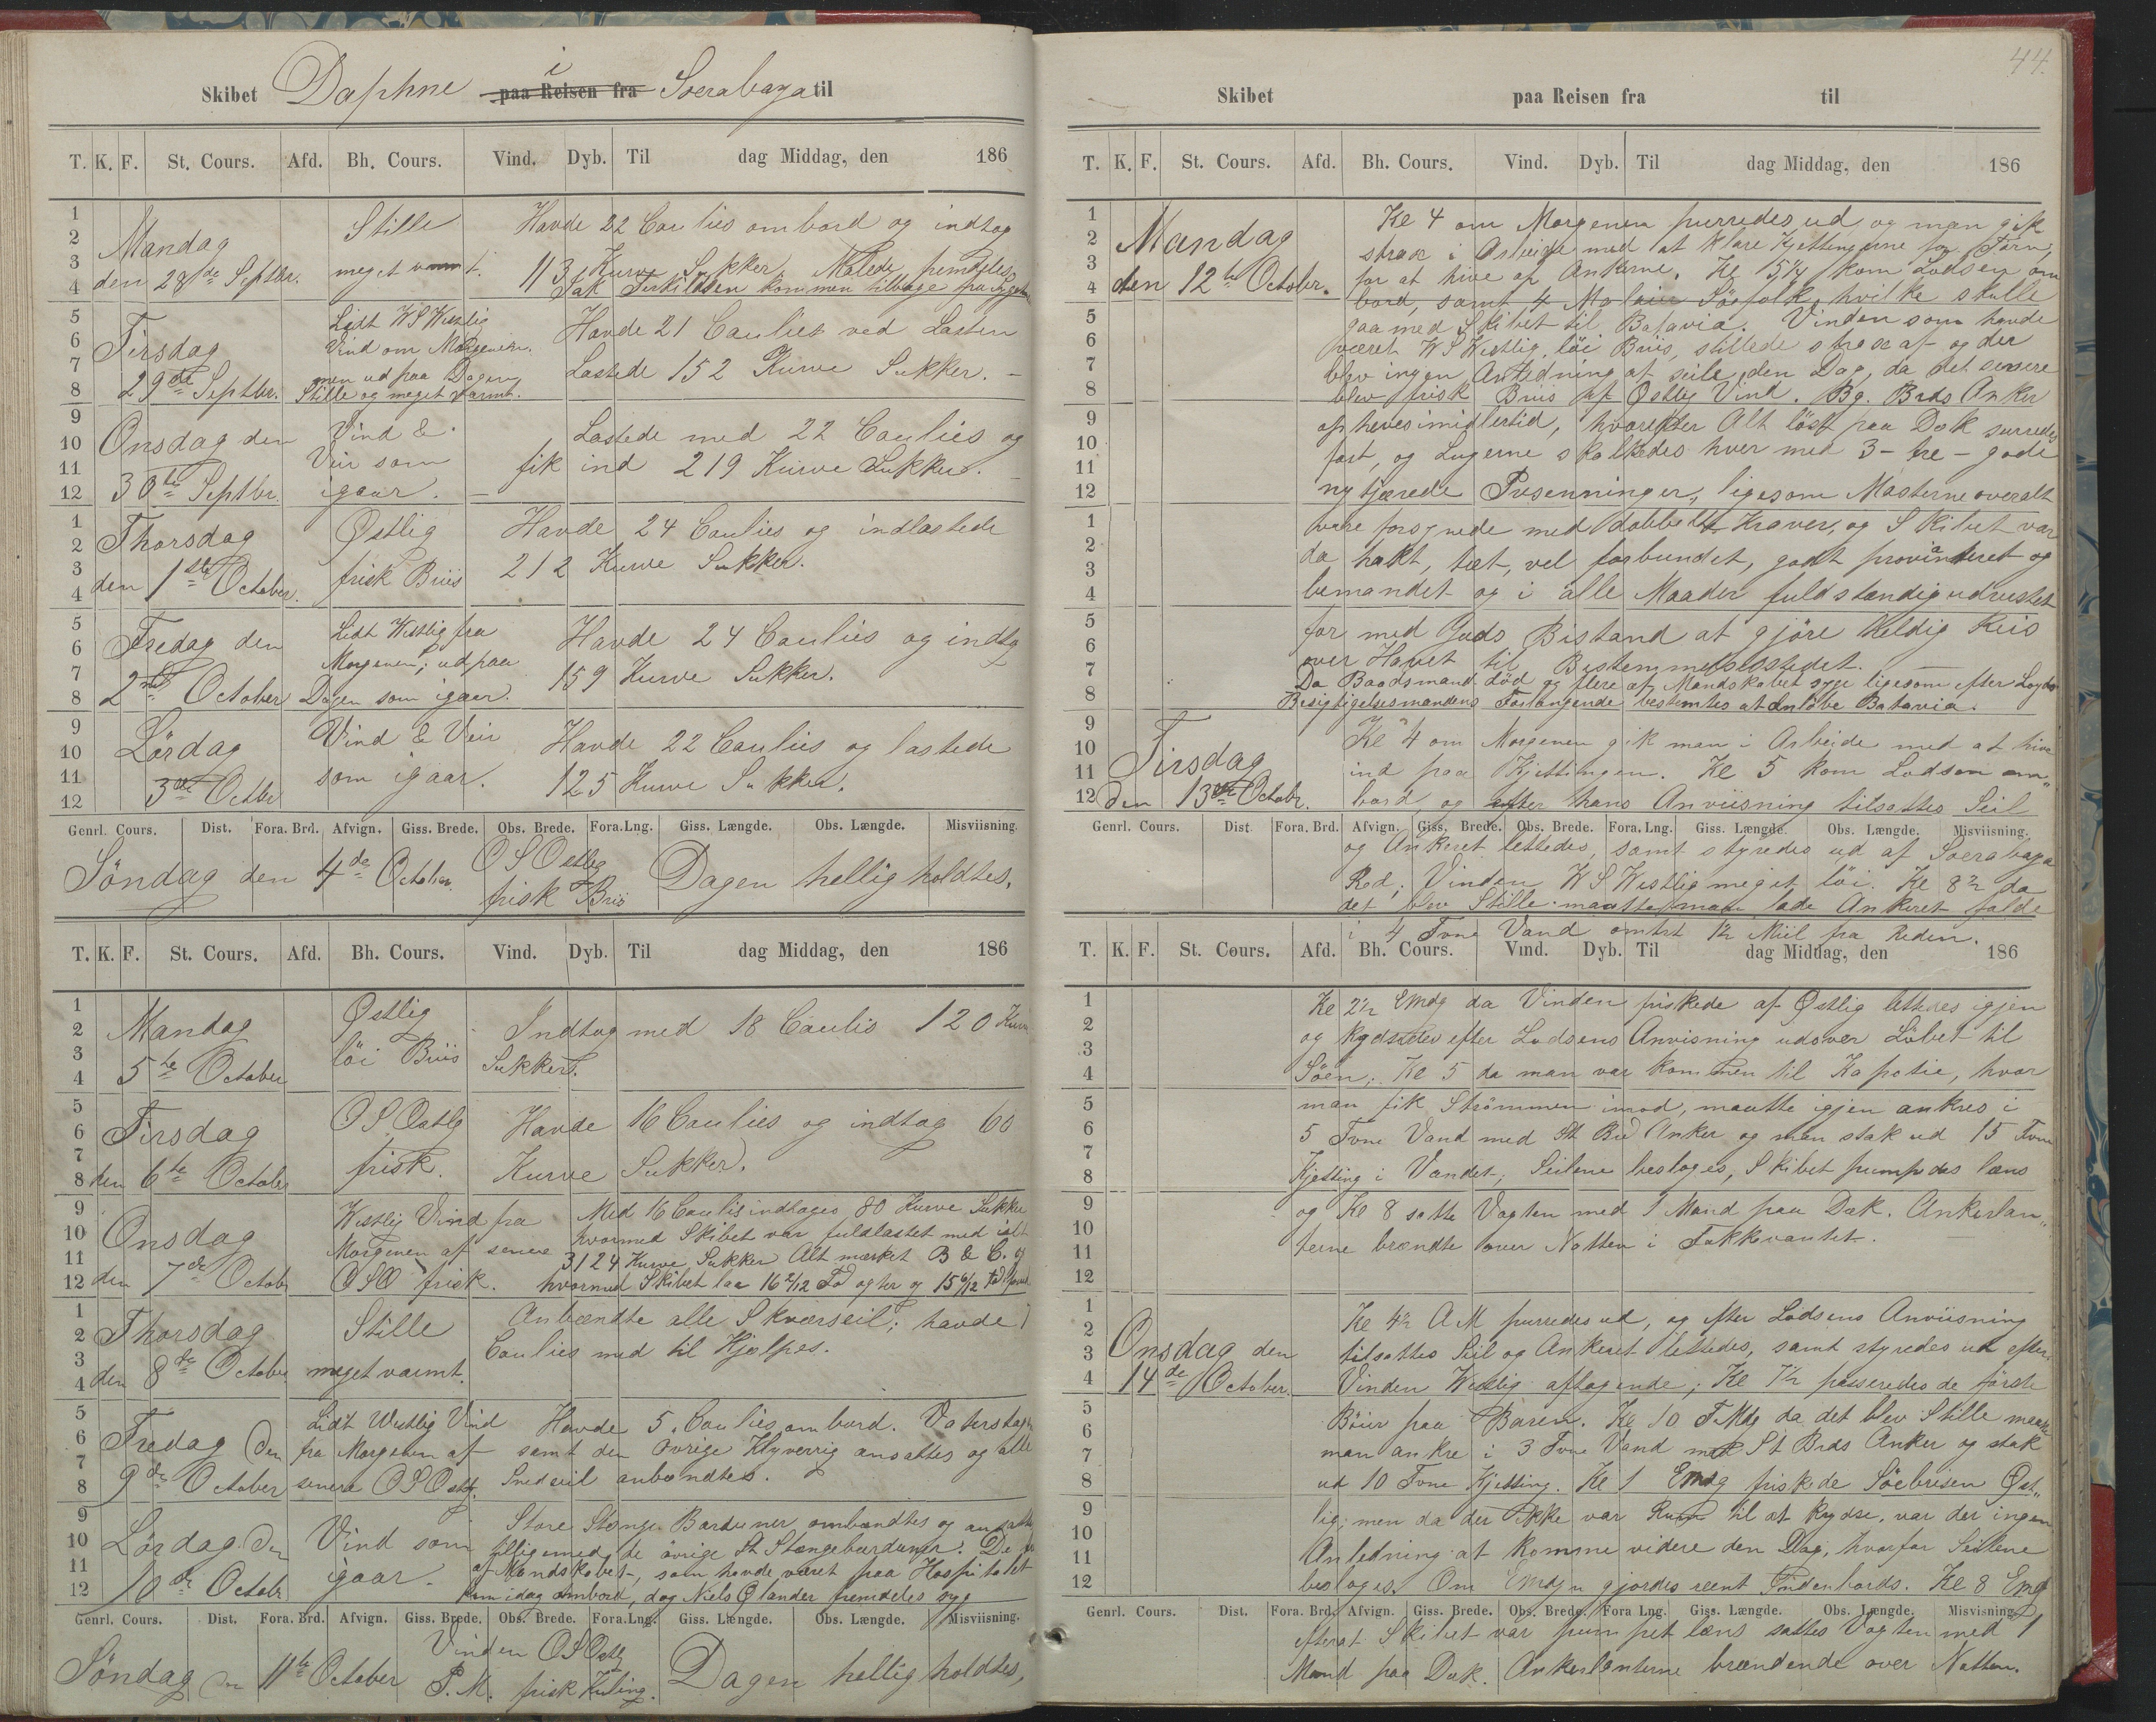 Skibet Daphne i paa Reisen fra Soerabaya til
T. K. F. St. Cours. Afd. Bh. Cours. Vind. Dyb. Til dag Middag, den 186
Mandag den 28de Septbr.
Stille meget varmt.
Havde 22 Coulies ombord og indtog
113 Kurve Sukker. Malede fremdeles.
Jak Terkildsen kommen tilbage fra
Tirsdag 29de Septbr.
Lidt WSWestlig
Vind om Morgenen.
men ud paa Dagen
Stille og meget varmt.
Havde 21 Coulies ved Lasten
Lastede 152 Kurve Sukker. –
Onsdag den 30te Septbr.
Vind &
Veir som
igaar. –
Lastede med 22 Coulies og
fik ind 219 Kurve Sukker. –
Thorsdag den 1ste October.
Østlig
frisk Briis
Havde 24 Coulies og indlastede
212 Kurve Sukker.
Fredag den 2den October
Lidt Westlig fra
Morgenen; ud paa
Dagen som igaar.
Havde 24 Coulies og indtog
159 Kurve Sukker.
Lørdag 3de Octbr
Vind & Veir
som igaar.
Havde 22 Coulies og lastede
125 Kurve Sukker.
Genrl. Cours. Dist. Fora. Brd. Afvign. Giss. Brede. Obs. Brede. Fora.Lng. Giss. Længde. Obs. Længde. Misviisning.
Söndag den 4de October.
OSOstlig
frisk Briis
Dagen helligholdtes.
T. K. F. St. Cours. Afd. Bh. Cours. Vind. Dyb. Til dag Middag, den 186
Mandag 5te October
Østlig
löi Briis
Indtog med 18 Coulis 120 Kurve
Sukker.
Tirsdag den 6te October
OSOstlg
frisk.
Havde 16 Coulies og indtog 60
Kurve Sukker.
Onsdag den 7de Octobr
Westlig Vind fra
Morgenen af senere
OSO frisk.
Med 16 Coulis indtoges 80 Kurve Sukker
hvormed Skibet var fuldlastet med ialt
3124 Kurve Sukker Alt mærket B & C. og
hvormed Skibet laa 16 2/12 Fod agter og 15 6/12 Fod
Thorsdag den 8de October
Stille
meget varmt.
Anbændte alle Skværseil; havde 7
Coulies med til Hjælpes.
Fredag den 9de October
Lidt Westlig Vind
fra Morgenen af
senere OSOstlg.
Havde 5 Coulies ombord. Vaterstagn
samt den Øvrige Klyverrig ansattes og alle
Snedseil anbændtes.
Lördag den 10de Octobr
Vind som
igaar.
Store Stænge Barduner ombændtes og ansattes
tilligemed de övrige St Stængebarduner. De
af Mandskabet, som havde været paa Hospitalet
kom idag ombord, dog Niels Ølander fremdeles syg
Genrl. Cours. Dist. Fora. Brd. Afvign. Giss. Brede. Obs. Brede. Fora.Lng. Giss. Længde. Obs. Længde. Misviisning.
Söndag den 11te October
Vinden OSOstlg
P.M. frisk Kuling.
Dagen helligholdtes,
44.
Skibet paa Reisen fra til
T. K. F. St. Cours. Afd. Bh. Cours. Vind. Dyb. Til dag Middag, den 186
Mandag den 12te October.
Kl 4 om Morgenen purredes ud og man gik
strax i Arbeide med at klare Kjettingerne for Törn,
for at hive op Ankerne. Kl 5 1/4 kom Lodsen om
bord, samt 4 Malaier Söefolk, hvilke skulle
gaa med Skibet til Batavia. Vinden som havde
været WSWestlig löi Briis, stillede strax af og der
blev ingen Anledning at seile den Dag, da det senere
blev frisk Briis af Østlig Vind. Bg. Brds Anker
opheves imidlertid, hvorefter Alt löst paa Dæk surredes
fast, og Lugerne skalkedes hver med 3 – tre – gode
nytjærede Presenninger, ligesom Masterne overalt
vare forsynede med dobbelte Kraver, og Skibet var
da takt, tæt, vel forbundet, godt provianteret og
bemandet og i alle Maader fuldstændig udrustet
for med Guds Bistand at gjöre Heldig Reis
over Havet til Bestemmelsesstedet.
Da Baadsmand död og flere af Mandskabet syge ligesom efter Loyds
Besigtigelsesmandens Forlangende bestemtes at Anløbe Batavia.
Tirsdag den 13de Octobr.
Kl 4 om Morgenen gik man i Arbeide med at hive
ind paa Kjettingen. Kl 5 kom Lodsen om
bord og efter hans Anviisning tilsattes Seil
Genrl. Cours. Dist. Fora. Brd. Afvign. Giss. Brede. Obs. Brede. Fora. Lng. Giss. Længde. Obs. Længde. Misviisning.
og Ankeret lettedes, samt styredes ud af Soerabaya
Red; Vinden WSWestlig meget löi. Kl 8 1/2 da
det blev Stille maatte man lade Ankeret falde
i 4 Fvne Vand omtrt 1 1/2 Miil fra Reden.
T. K. F. St. Cours. Afd. Bh. Cours. Vind. Dyb. Til dag Middag, den 186
Kl 2 1/2 EMdg da Vinden friskede af Østlig lettedes igjen
og krydsedes efter Lodsens Anvisning udover Löbet til
Söen; Kl 5 da man var kommen til Kapotie, hvor
man fik Strömmen imod, maatte igjen ankres i
5 Fvne Vand med St Brd Anker og man stak ud 15 Fvne
Kjetting i Vandet, Seilene besloges, Skibet pumpedes læns
og Kl 8 satte Vagten med 1 Mand paa Dæk. Ankerlan„
terne brændte over Natten i Fokkevantet.
Onsdag den 14de October.
Kl 4 1/2 AM purredes ud, og efter Lodsens Anviisning
tilsattes Seil og Ankeret lettedes, samt styredes ud efter.
Vinden Westlig aftagende; Kl 7 1/2 passeredes de förste
Böier paa Baren. Kl 10 FMdg da det blev Stille maatte
man ankre i 3 Fvne Vand med St Brds Anker og stak
ud 10 Fvne Kjetting. Kl 1 EMdg friskede Söebrisen Øst„
lig; men da der ikke var Rum til at krydse, var der ingen
Anledning at komme videre den Dag, hvorfor Seilene
besloges. Om EMdgn gjordes reent Indenbords. Kl 8 EMdg
Genrl. Cours. Dist. Fora. Brd. Afvign. Giss. Brede. Obs. Brede. Fora Lng. Giss. Længde. Obs. Længde. Misvisning.
efterat Skibet var pumpet læns sattes Vagten med 1
Mand paa Dæk. Ankerlanterne brændende over Natten.